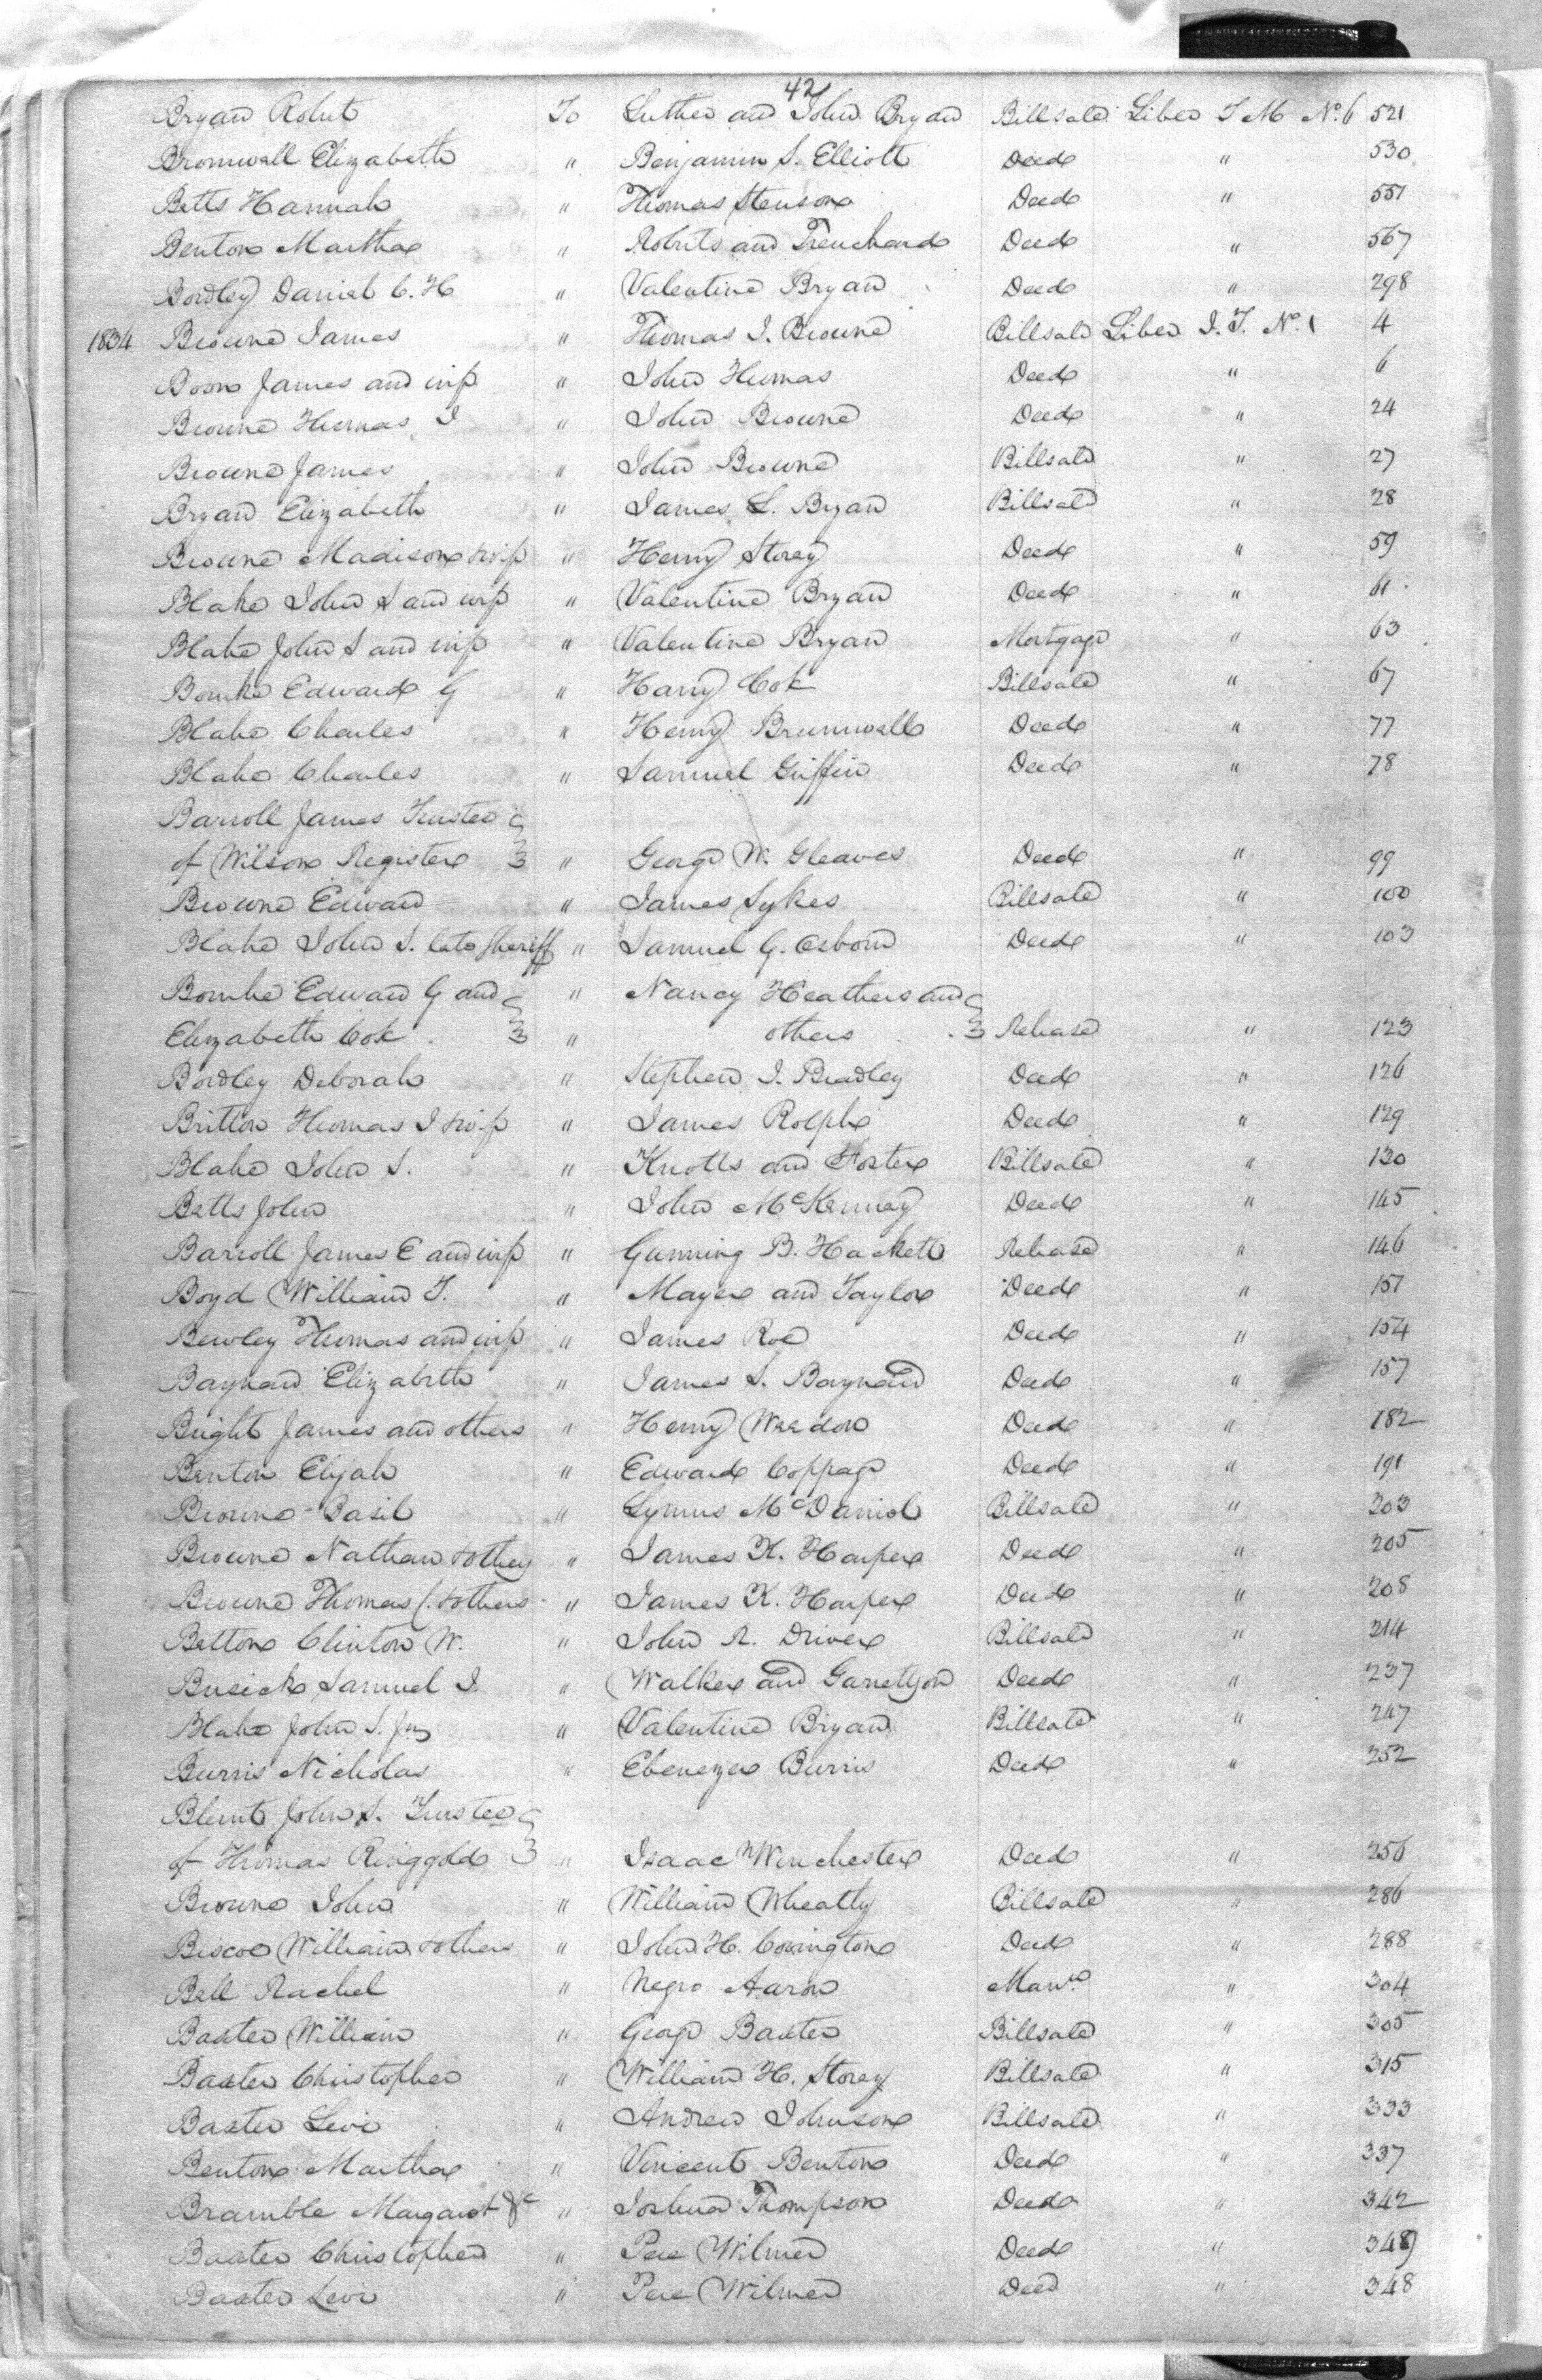 42
Bryan Robert To Luther and John Bryan Billsale Liber T M No. 6 521
Bromwell Elizabeth " Benjamin S. Elliott Deed " 530
Betts Hannah " Thomas Stenson Deed " 551
Benton Martha " Roberts and Trenchard Deed " 567
Bordley Daniel C. H " Valentine Bryan Deed " 298
1834 Browne James " Thomas I. Browne Billsale Liber J. T. No. 1 4
Boon James and wife " John Thomas Deed " 6
Browne Thomas I " John Browne Deed " 24
Browne James " John Browne Billsale " 27
Bryan Elizabeth " James L. Bryan Billsale " 28
Browne Madison & wife " Henry Storey Deed " 59
Blake John S and wife " Valentine Bryan Deed " 61
Blake John S and wife " Valentine Bryan Mortgage " 63
Bourke Edward G " Harry Cok Billsale " 67
Blake Charles " Henry Brumwell Deed " 77
Blake Charles " Samuel Griffin Deed " 78
Barroll James Trustee
of Wilson Register " George W. Gleaves Deed " 99
Browne Edward " James Sykes Billsale " 100
Blake John S. late Sheriff " Samuel G. Osborn Deed " 103
Bourke Edward G and " Nancy Heathers and
Elizabeth Cok " others Release " 123
Bordley Deborah " Stephen I. Bradley Deed " 126
Britton Thomas I & wife " James Rolph Deed " 129
Blake John S. " Knotts and Foster Billsale " 130
Betts John " John McKenney Deed " 145
Barroll James E and wife " Gunning B. Hackett Release " 146
Boyd William T. " Mayer and Taylor Deed " 151
Bewley Thomas and wife " James Roe Deed " 154
Baynard Elizabeth " James S. Baynard Deed " 157
Bright James and others " Henry Weedon Deed " 182
Benton Elijah " Edward Coppage Deed " 191
Browne Basil " Lymus McDaniel Billsale " 203
Browne Nathan & others " James K. Harper Deed " 205
Browne Thomas C. & others " James K. Harper Deed " 208
Betton Clinton W. " John R. Driver Billsale " 214
Busick Samuel I. " Walker and Garrettson Deed " 237
Blake John S. Jn " Valentine Bryan Billsale " 247
Burris Nicholas " Ebenezer Burris Deed " 252
Blunt John S. Trustee
of Thomas Ringgold " Isaac Winchester Deed " 256
Browne John " William Wheatly Billsale " 286
Biscoe William & others " John H. Covington Deed " 288
Bell Rachel " Negro Aaron Mann. " 304
Baxter William " George Baxter Billsale " 305
Baxter Christopher " William H. Storey Billsale " 315
Baxter Levi " Andrew Johnson Billsale " 333
Benton Martha " Vincent Benton Deed " 337
Bramble Margaret &c " Joshua Thompson Deed " 342
Baxter Christopher " Pere Wilmer Deed " 348
Baxter Levi " Pere Wilmer Deed " 348